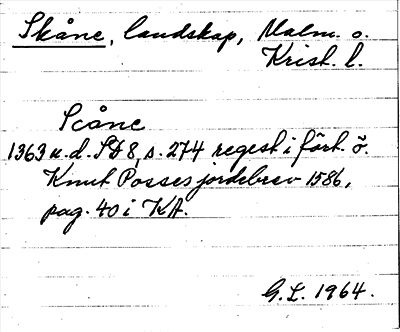 Skåne, landskap, Malm. o.
Krist. l.
Scåne
1363 u.d. SD 8, s. 274 regest i fört. ö.
Knut Posses jordebrev 1586,
pag. 40 i KA.
G.L. 1964.